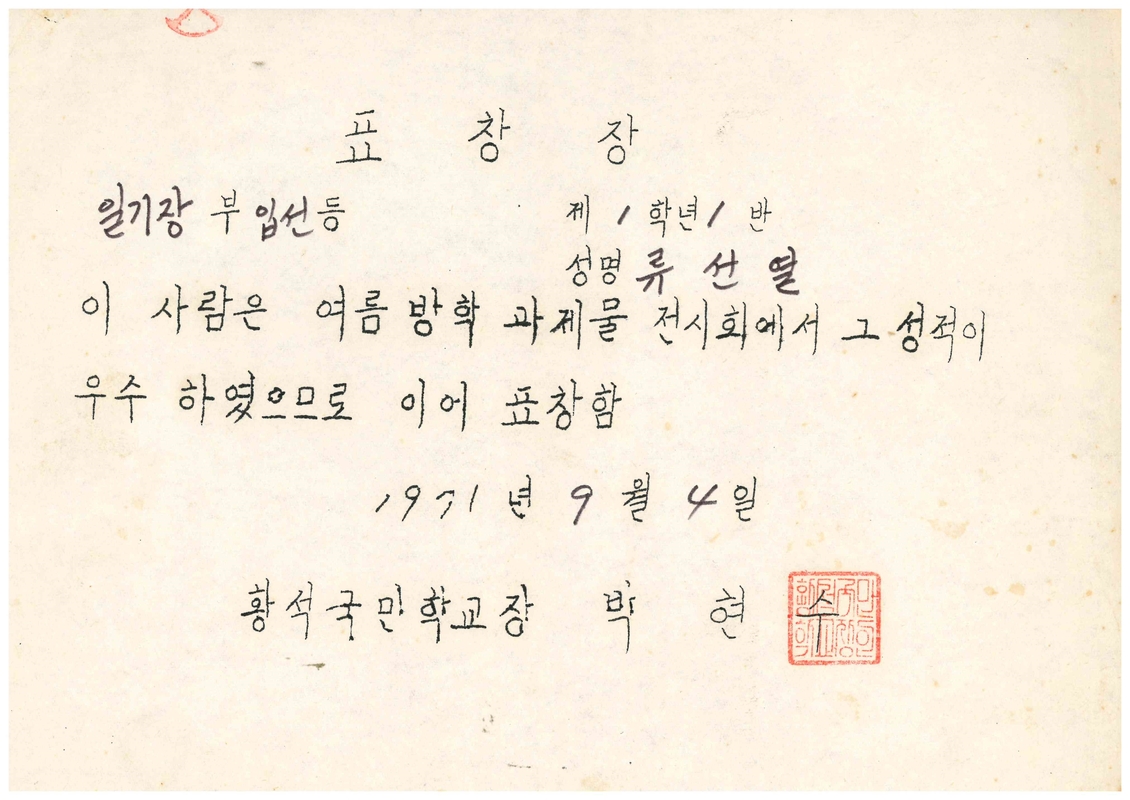 표 창 장
일기장 부 입선 등
제 1 학년 1 반
성명 류 선 열
이 사람은 여름 방학 과제물 전시회에서 그 성적이
우수 하였으므로 이어 표창함
1971 년 9 월 4 일
황석국민학교장 박 현 수